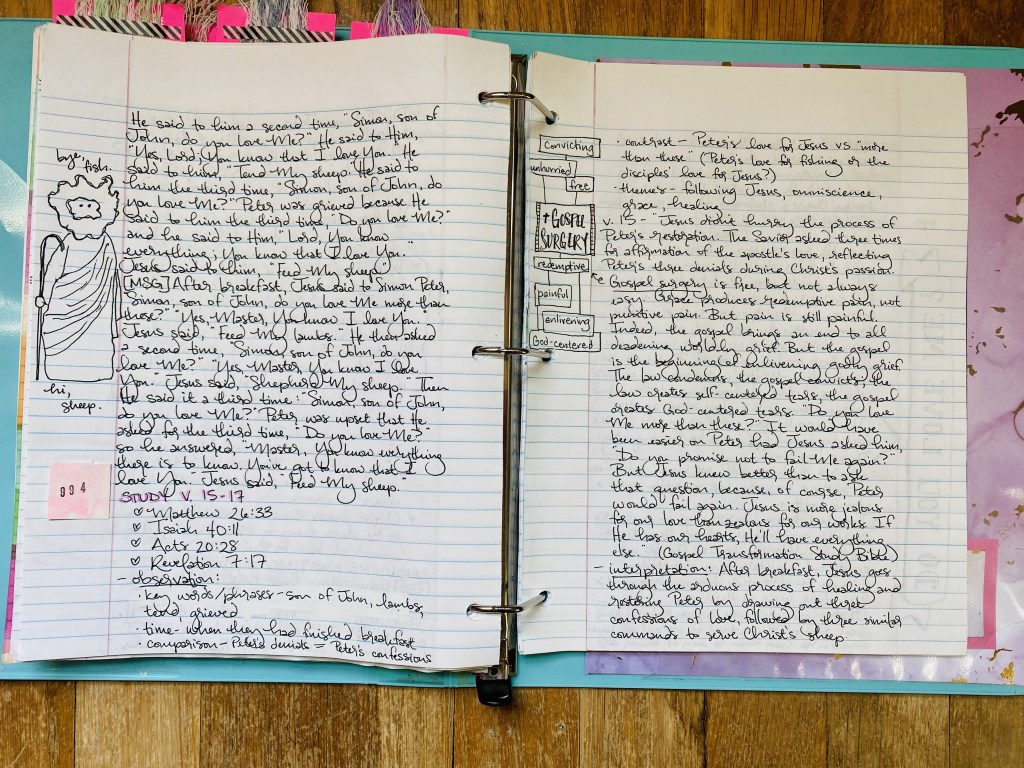 He said to him a second time, "Simon, son of
John, do you love Me?" He said to Him,
"Yes, Lord; You know that I love You." He
said to him, "Tend My sheep." He said to
him the third time, "Simon, son of John, do
you love Me?" Peter was grieved because He
said to him the third time, "Do you love Me?"
and he said to Him, "Lord, You know
everything; You know that I love You."
Jesus said to him, "Feed My sheep."
[MSG] After breakfast, Jesus said to Simon Peter,
"Simon, son of John, do you love Me more than
these?" "Yes, Master, You know I love You."
Jesus said, "Feed My lambs." He then asked
a second time, "Simon, son of John, do you
love Me?" "Yes, Master, You know I love
You." Jesus said, "Shepherd My sheep." Then
He said it a third time: "Simon, son of John,
do you love Me?" Peter was upset that He
asked for the third time, "Do you love Me?"
so he answered, "Master, You know everything
there is to know. You've got to know that I
love You." Jesus said, "Feed My sheep."
STUDY V. 15-17
♡ Matthew 26:33
♡ Isaiah 40:11
♡ Acts 20:28
♡ Revelation 7:17
- observation:
· key words/phrases - son of John, lambs,
tend, grieved
· time - when they had finished breakfast
· comparison - Peter's denials = Peter's confessions
bye,
fish.
hi,
sheep.
994
convicting
unhurried
free
+ GOSPEL
SURGERY
redemptive
painful
enlivening
God-centered
· contrast - Peter's love for Jesus vs "more
than these" (Peter's love for fishing or the
disciples' love for Jesus?)
· themes - following Jesus, omniscience,
grace, healing
v. 15 - "Jesus didn't hurry the process of
Peter's restoration. The Savior asked three times
for affirmation of the apostle's love, reflecting
Peter's three denials during Christ's passion.
Gospel surgery is free, but not always
easy. Grace produces redemptive pain, not
punitive pain. But pain is still painful.
Indeed, the gospel brings an end to all
deadening worldly grief. But the gospel
is the beginning of enlivening godly grief.
The law condemns, the gospel convicts; the
law creates self-centered tears, the gospel
creates God-centered tears. "Do you love
Me more than these?" It would have
been easier on Peter had Jesus asked him,
"Do you promise not to fail Me again?"
But Jesus knew better than to ask
that question, because, of course, Peter
would fail again. Jesus is more jealous
for our love than zealous for our works. If
He has our hearts, He'll have everything
else." (Gospel Transformation Study Bible)
- interpretation: After breakfast, Jesus goes
through the arduous process of healing and
restoring Peter by drawing out three
confessions of love, followed by three similar
commands to serve Christ's sheep